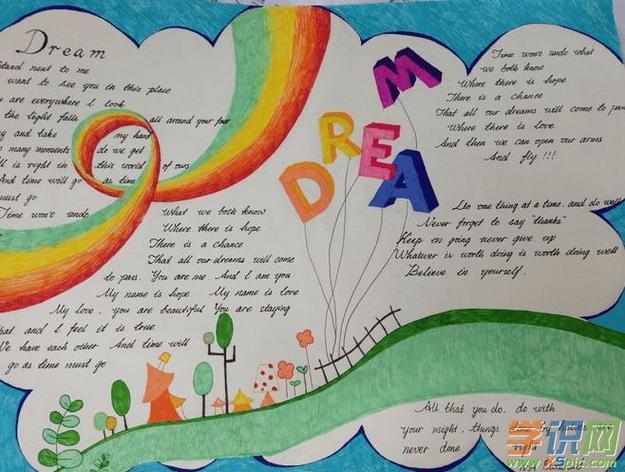 Dream
stand next to me
want to see you in this place
are everywhere I look
the light falls all around your face
and take my hand
many moments do we get
is right in this world of ours
And time will go as time
must go
Time won't undo What we both know
Where there is hope
There is a chance
That all our dreams will come
to pass. You are me. And I am you
My name is hope My name is love
My love, you are beautiful You are staying
that and I feel it is true
We have each other And time will
go as time must go
DREAM
Time won't undo what
we both know
Where there is hope
There is a chance
That all our dreams will come to pass
Where there is love
And then we can open our arms
And fly!!!
Do one thing at a time, and do well
Never forget to say "thanks"
Keep on going never give up
Whatever is worth doing is worth doing well
Believe in yourself.
All that you do, do with
your might, things done by halves are
never done right
学识网